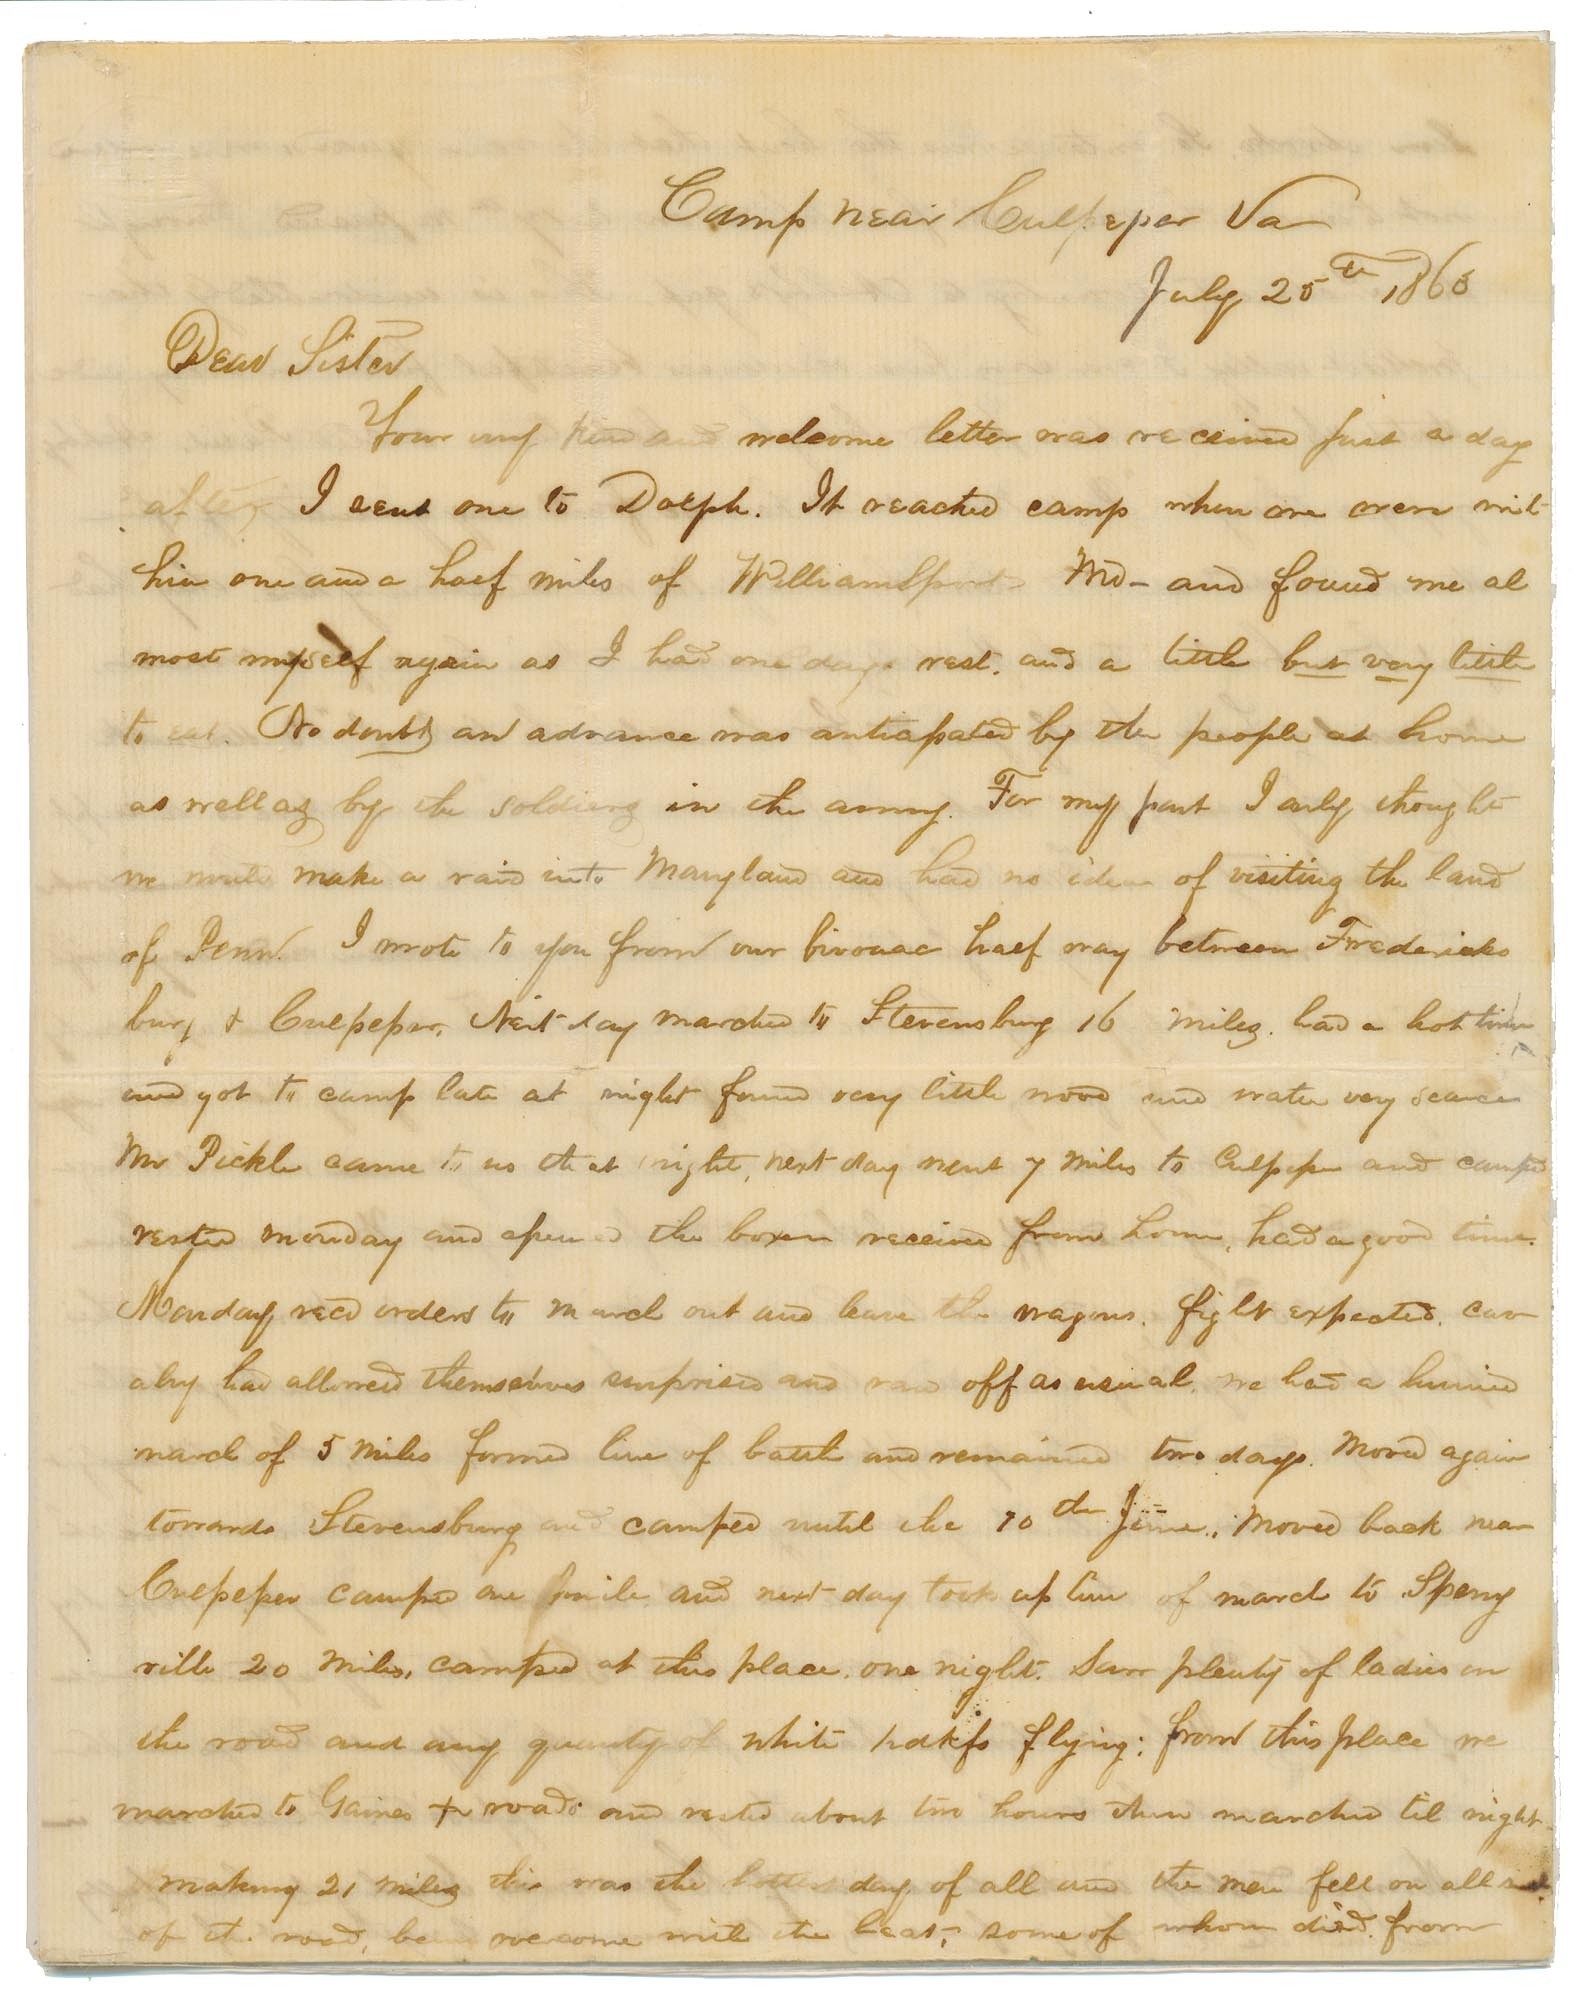 Camp near Culpeper Va
July 25th 1863
Dear Sister
Your very kind and welcome letter was received just a day
after I sent one to Dolph. It reached camp when we were wit
hin one and a half miles of Williamsport Md - and found me al
most myself again as I had one days rest. and a little but very little
to eat. No doubt an advance was anticipated by the people at home
as well as by the soldiers in the army. For my part I only thought
we would make a raid into Maryland and had no idea of visiting the land
of Penn. I wrote to you from our bivouac half way between Fredericks
burg & Culpeper. Next day marched to Stevensburg 16 miles. had a hot time
and got to camp late at night found very little wood and water very scarce
Mr Pickle came to us that night, next day went 7 miles to Culpeper and camped
rested monday and opened the boxes received from home, had a good time.
Monday recd orders to march out and leave the wagons. fight expected. cav
alry had allowed themselves surprised and ran off as usual, we had a hurried
march of 5 miles formed line of battle and remained two days. Moved again
towards Stevensburg and camped until the 10th June., Moved back near
Culpeper camped one while and next day took up line of march to Sperry
ville 20 miles, camped at this place one night. Saw plenty of ladies on
the road and any quantity of white hdkfs flying; from this place we
marched to Gaines + roads and rested about two hours then marched til night
making 21 miles this was the hottest day of all and the men fell on all
of the road, being overcome with the heat, some of whom died from